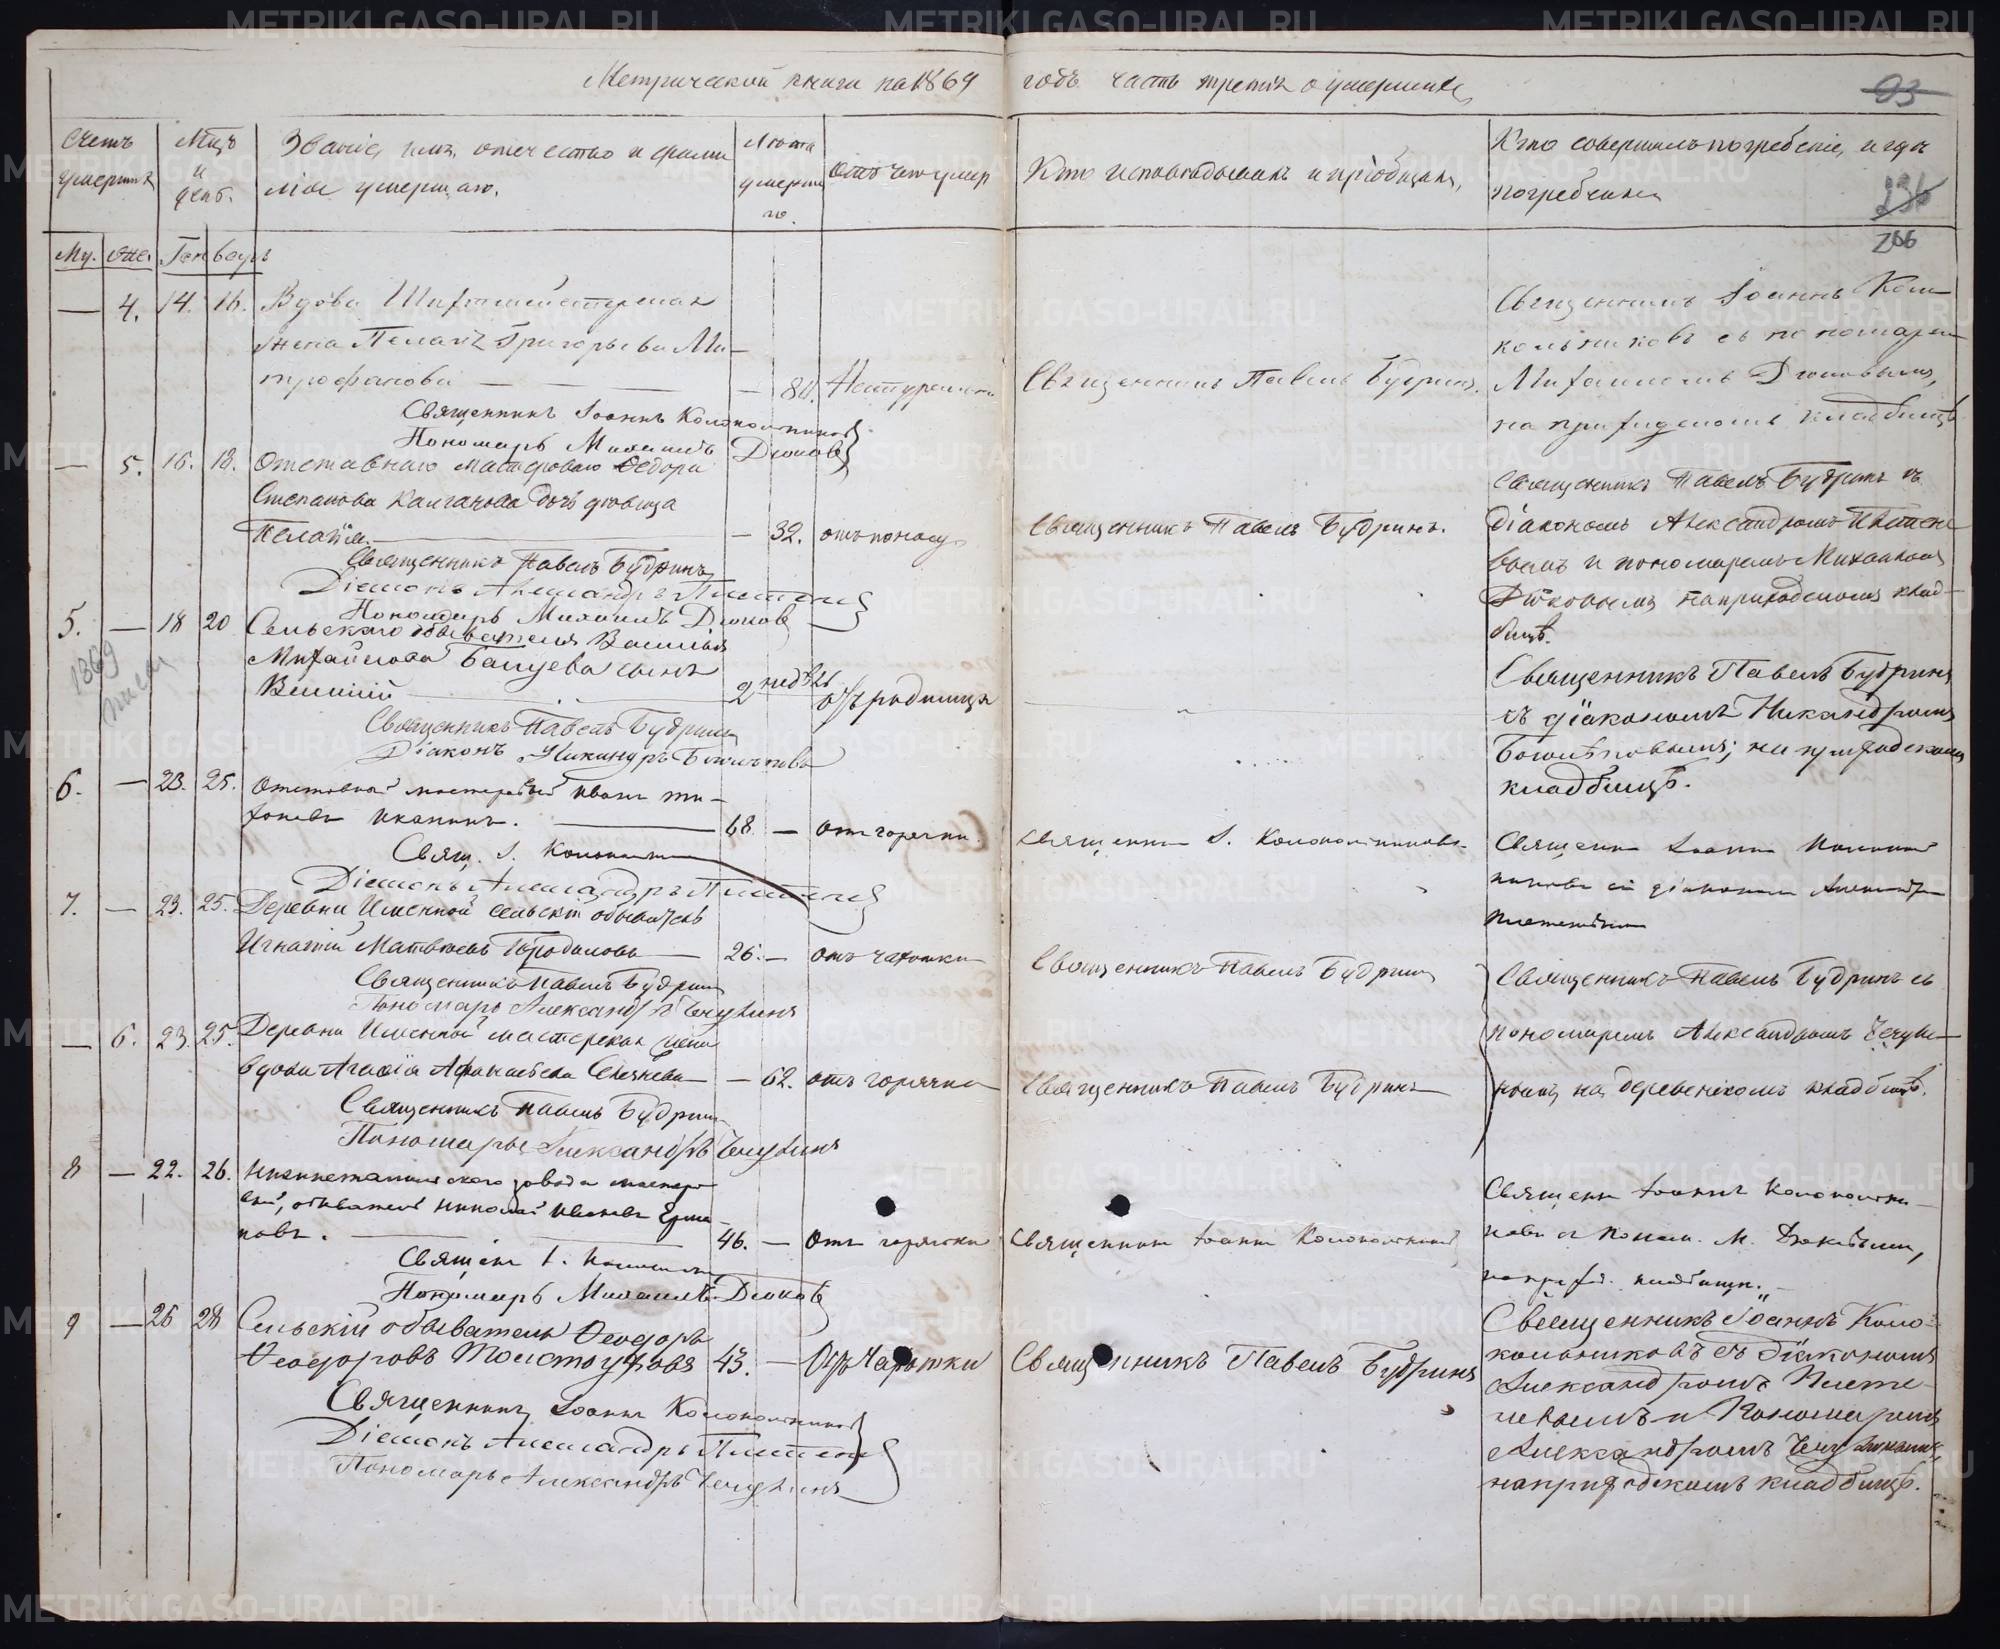 Метрической книги на 1869 годъ часть третія о умершихъ
93
Счетъ умершихъ
Мцъ и день.
Званіе, имя, отечество и фамилія умершаго.
Лѣта умершаго.
Отъ чего умеръ
Кто исповѣдывалъ и пріобщалъ,
Кто совершалъ погребеніе, и гдѣ погребены
236
266
Му. Же. Генварь
— 4. 14. 16. Вдова Шихтмейстерская
жена Пелагія Григорьева Ми-
трофанова — — 80. Натурально Священникъ Павелъ Будринъ.
Священникъ Іоаннъ Коло-
кольниковъ съ пономаремъ
Михаиломъ Дюковымъ,
на приходскомъ кладбищѣ
Священникъ Іоаннъ Колокольниковъ
Пономарь Михаилъ Дюковъ
— 5. 16. 18. Отставнаго мастероваго Ѳедора
Степанова Калганова дочь дѣвица
Пелагія. — 32. отъ поносу Священникъ Павелъ Будринъ.
Священникъ Павелъ Будринъ съ
діакономъ Александромъ Плетене-
вымъ и пономаремъ Михаиломъ
Дюковымъ на приходскомъ клад-
бищѣ.
Священникъ Павелъ Будринъ
Діаконъ Александръ Плетеневъ
Пономарь Михаилъ Дюковъ
5. — 18 20 Сельскаго обывателя Василья
Михайлова Бацуева сынъ
Василій — 2 недѣль отъ родимца
1869
Священникъ Павелъ Будринъ
съ діакономъ Никандромъ
Богомъ; на приходскомъ
кладбищѣ.
Священникъ Павелъ Будринъ
Діаконъ Никандръ
6. — 23. 25. Отставной мастеровой Иванъ Ти-
хоновъ Иканинъ. — 68 — Отъ горячки. Священникъ І. Колокольниковъ
Священникъ Іоаннъ Колоколь-
никовъ съ діакономъ Александромъ
Плетеневымъ
Свящ. І. Колокольниковъ
Діаконъ Александръ Плетеневъ
7. — 23. 25. Деревни Именной сельскій обыватель
Игнатій Матвѣевъ — 26. — отъ чахотки Священникъ Павелъ Будринъ
Священникъ Павелъ Будринъ
Пономарь Александръ Чечулинъ
— 6. 23. 25. Деревни Именной мастерская жена
вдова Агафія Афанасьева — 62. отъ горячки Священникъ Павелъ Будринъ
Священникъ Павелъ Будринъ съ
пономаремъ Александромъ Чечули-
нымъ на деревенскомъ кладбищѣ.
Священникъ Павелъ Будринъ
Пономарь Александръ Чечулинъ
8 — 22. 26. Нижнетагильскаго завода мастеро-
вой, обыватель Николай Ивановъ Ерма-
ковъ. — 46. — Отъ горячки Священникъ Іоаннъ Колокольниковъ
Священникъ Іоаннъ Колокольни-
ковъ съ Поном. М. Дюковымъ,
на прих. кладбищѣ.
Священ. І. Колокольниковъ
Пономарь Михаилъ Дюковъ
9 — 26 28 Сельскій обыватель Ѳеодоръ
Ѳеодоровъ Толстоуховъ 43. — Отъ Чахотки Священникъ Павелъ Будринъ
Священникъ Іоаннъ Коло-
кольниковъ съ Діакономъ
Александромъ Плете-
невымъ и Пономаремъ
Александромъ Чечулинымъ,
на приходскомъ кладбищѣ.
Священникъ Іоаннъ Колокольниковъ
Діаконъ Александръ Плетеневъ
Пономарь Александръ Чечулинъ
METRIKI.GASO-URAL.RU